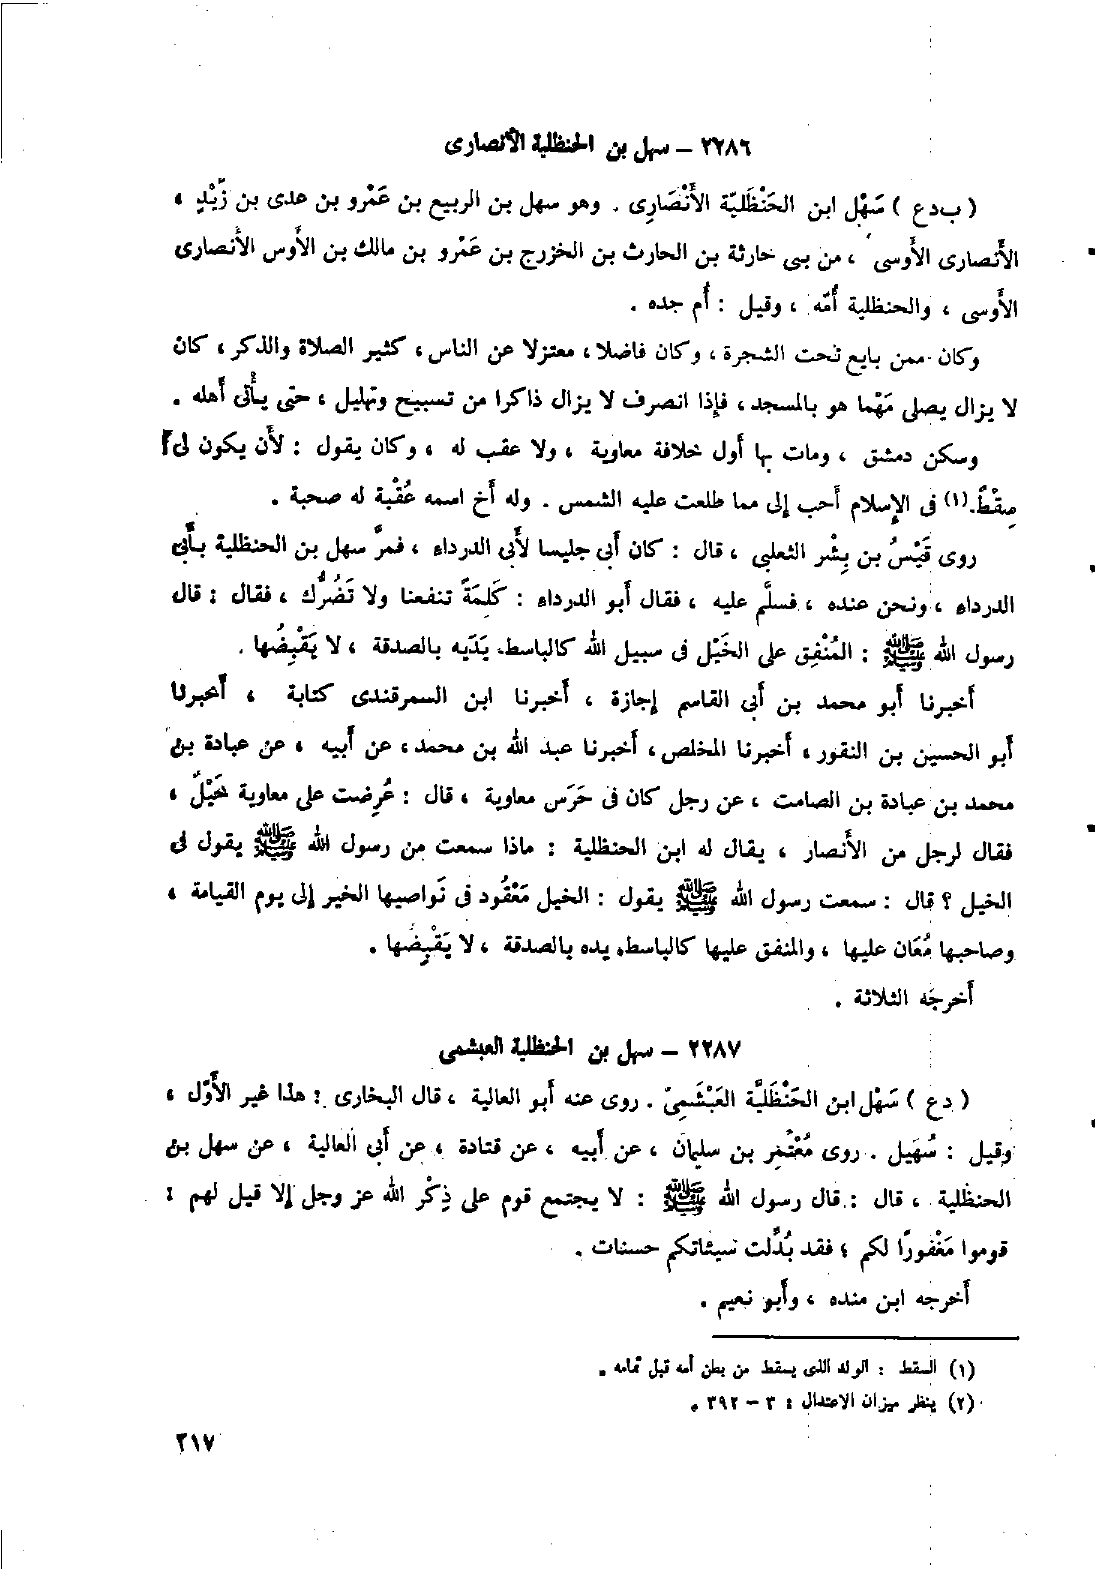 ٢٢٨٦ – سهل بن الحنظلية الأنصارى
( ب د ع ) سَهْل ابن الحَنْظَلِيّة الأَنْصَارِى . وهو سهل بن الربيع بن عَمْرو بن عدى بن زَيْدٍ ،
الأَنصارى الأوسى ، من بنى حارثة بن الحارث بن الخزرج بن عَمْرو بن مالك بن الأَوس الأَنصارى
الأَوسى ، والحنظلية أُمّه ، وقيل : أُم جده .
وكان ممن بايع تحت الشجرة ، وكان فاضلا ، معتزلا عن الناس ، كثير الصلاة والذكر ، كان
لا يزال يصلى مَهْما هو بالمسجد ، فإذا انصرف لا يزال ذاكرا من تسبيح وتهليل ، حتى يأتى أهله .
وسكن دمشق ، ومات بها أول خلافة معاوية ، ولا عقب له ، وكان يقول : لأَن يكون لى
سِقْطٌ (١) فى الإسلام أحب إلى مما طلعت عليه الشمس . وله أخ اسمه عُقْبة له صحبة .
روى قَيْسُ بن بِشْر الثعلبى ، قال : كان أبى جليسا لأَبى الدرداء ، فمرَّ سهل بن الحنظلية بأَبى
الدرداء ، ونحن عنده ، فسلَّم عليه ، فقال أبو الدرداء : كَلِمَةً تنفعنا ولا تَضُرُّك ، فقال : قال
رسول الله ﷺ : المُنْفِق على الخَيْل فى سبيل الله كالباسط يَدَيه بالصدقة ، لا يَقْبِضُها .
أخبرنا أبو محمد بن أبى القاسم إجازة ، أخبرنا ابن السمرقندى كتابة ، أخبرنا
أبو الحسين بن النقور ، أخبرنا المخلص ، أخبرنا عبد الله بن محمد ، عن أبيه ، عن عبادة بن
محمد بن عبادة بن الصامت ، عن رجل كان فى حَرَس معاوية ، قال : عُرِضت على معاوية خَيْلٌ ،
فقال لرجل من الأَنصار ، يقال له ابن الحنظلية : ماذا سمعت من رسول الله ﷺ يقول فى
الخيل ؟ قال : سمعت رسول الله ﷺ يقول : الخيل مَعْقُود فى نَواصيها الخير إلى يوم القيامة ،
وصاحبها مُعَان عليها ، والمنفق عليها كالباسط يده بالصدقة ، لا يَقْبِضُها .
أخرجَه الثلاثة .
٢٢٨٧ – سهل بن الحنظلية العبشمى
( د ع ) سَهْل ابن الحَنْظَلِيَّة العَبْشَمِىّ . روى عنه أبو العالية ، قال البخارى : هذا غير الأَوّل ،
وقيل : سُهَيل . روى مُعْتَمِر بن سليمان ، عن أبيه ، عن قتادة ، عن أبى العالية ، عن سهل بن
الحنظلية ، قال : قال رسول الله ﷺ : لا يجتمع قوم على ذِكْر الله عز وجل إلا قيل لهم :
قوموا مَغْفورًا لكم ؛ فقد بُدِّلت سيئاتكم حسنات .
أخرجه ابن منده ، وأبو نعيم .
(١) السقط : الولد الذى يسقط من بطن أمه قبل تمامه .
(٢) ينظر ميزان الاعتدال : ٣ – ٣٩٢ .
٢١٧